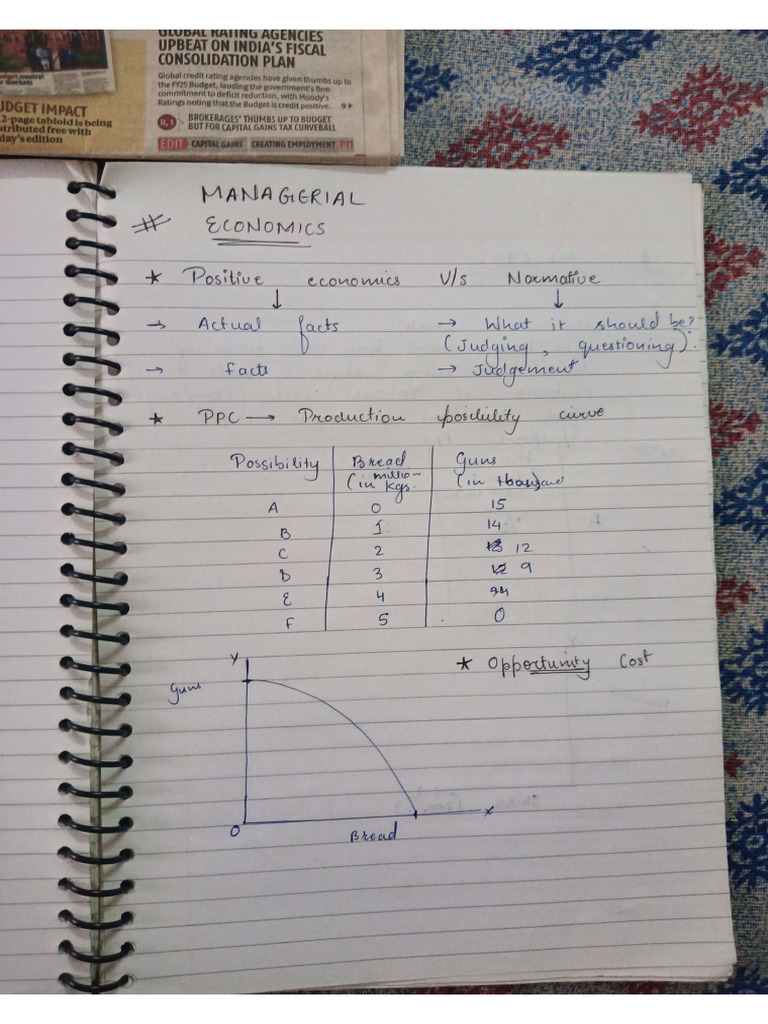 GLOBAL RATING AGENCIES
UPBEAT ON INDIA'S FISCAL
CONSOLIDATION PLAN
Global credit rating agencies have given thumbs up to
the FY25 Budget, lauding the government's firm
commitment to deficit reduction, with Moody's
Ratings noting that the Budget is credit positive. 9
II,1 BROKERAGES' THUMBS UP TO BUDGET
BUT FOR CAPITAL GAINS TAX CURVEBALL
EDIT CAPITAL GAINS CREATING EMPLOYMENT
UDGET IMPACT
2-page tabloid is being
stributed free with
day's edition
MANAGERIAL
# ECONOMICS
* Positive economics V/s Normative
↓ ↓
→ Actual facts → What it should be?
(Judging, questioning).
→ facts → Judgement
* PPC → Production possibility curve
Possibility Bread Guns
(in million kgs. (in thousand
A 0 15
B 1 14
C 2 12
D 3 9
E 4
F 5 0
* Opportunity Cost
Y
Guns
O X
Bread